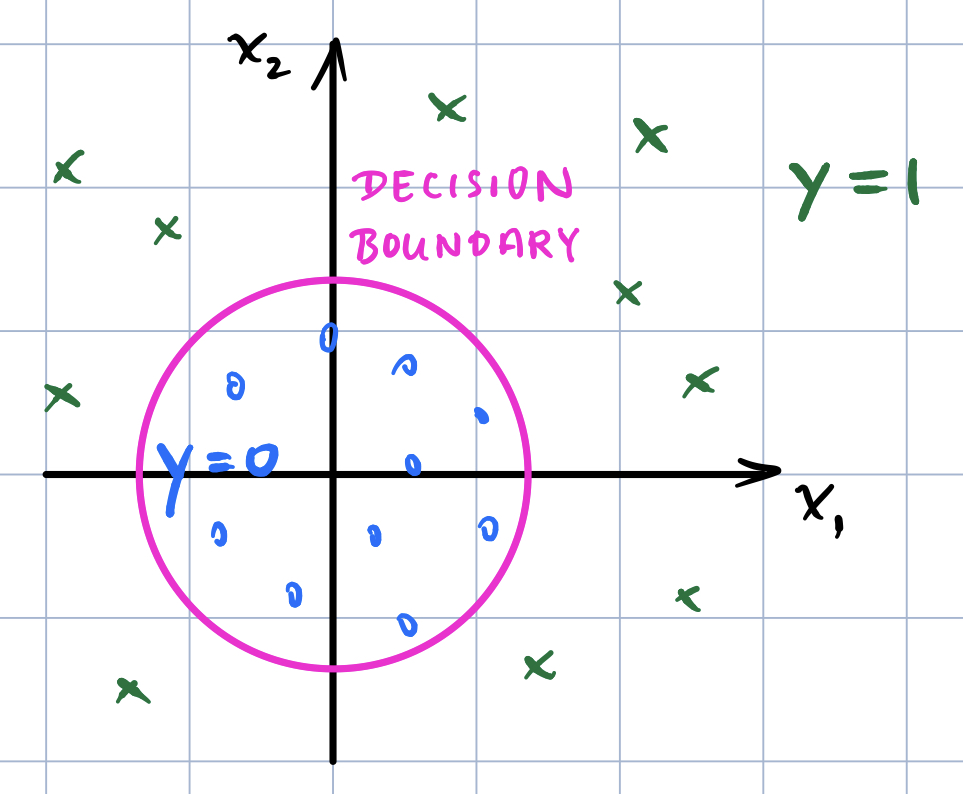 x₂
DECISION
BOUNDARY
y = 1
y = 0
x₁